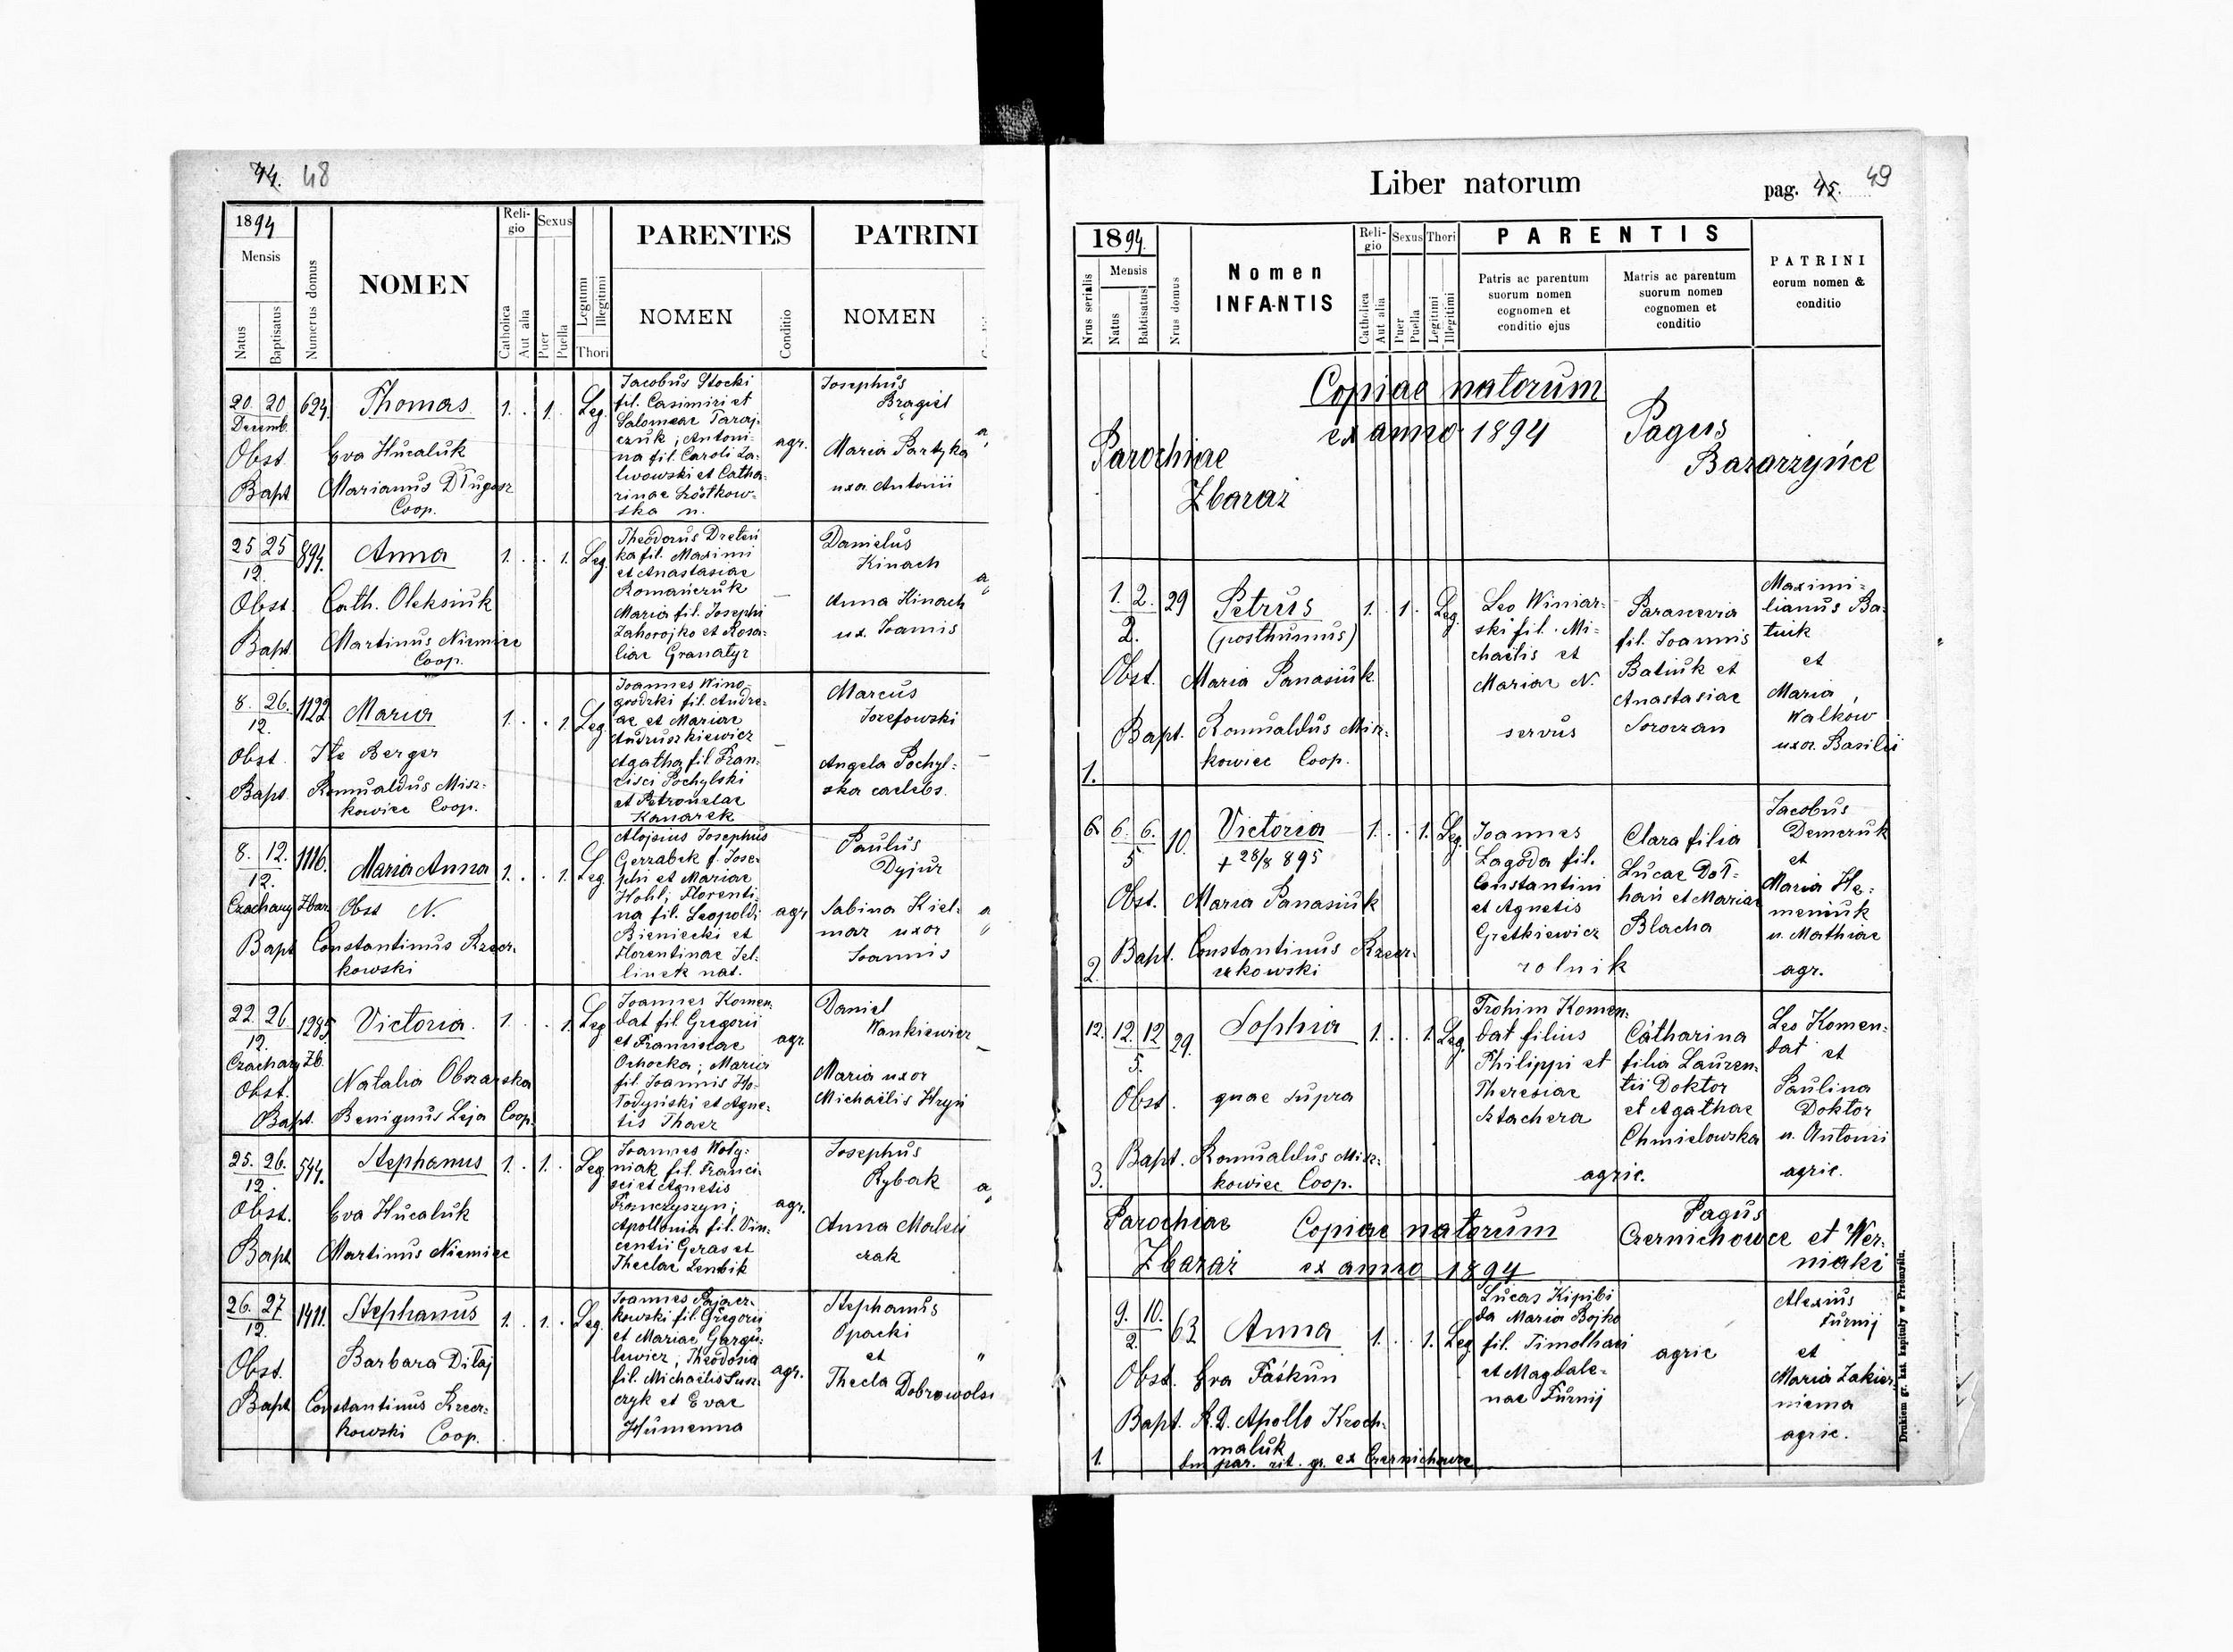 44. 48
1894
Mensis
Natus
Baptisatus
Numerus domus
NOMEN
Reli-
gio
Catholica
Aut alia
Sexus
Puer
Puella
Legitimi
Illegitimi
Thori
PARENTES
NOMEN
Conditio
PATRINI
NOMEN
20. 20
Decemb.
624.
Thomas
1. . 1. Leg.
Obst. Eva Hucaluk
Bapt. Marianus Długosz
Coop.
Jacobus Stocki
fil. Casimiri et
Salomeae Taraj-
czuk; Antoni-
na fil. Caroli La-
lwowski et Catha-
rinae
ska n.
agr.
Josephus
Bragiel
Maria Partyka
uxa Antonii
25 25
12.
894.
Anna
1. . . 1. Leg.
Obst. Cath. Oleksiuk
Bapt. Martinus Niemiec
Coop.
Theodorus
ka fil. Maximi
et Anastasiae
Romańczuk
Maria fil. Josephi
Zahorojko et Rosa-
liae Granatyr
Danielus
Kinach
Anna Kinach
ux. Joannis
8. 26.
12.
1122
Maria
1. . . 1. Leg.
Obst. Ite Berger
Bapt. Romualdus Misz-
kowicz Coop.
Joannes Wino-
grodzki fil. Andre-
ae et Mariae
Andruszkiewicz
Agatha fil. Fran-
cisci Pochylski
et Petronelae
Kanarek
Marcus
Jozefowski
Angela Pochyl-
ska caelebs.
8. 12.
12.
1116.
Maria Anna
1. . . 1. Leg.
Czachary Zbar. Obst N.
Bapt Constantinus Krzecz-
kowski
Aloisius Josephus
Gerzabek f. Jose-
phi et Mariae
Hohl; Florenti-
na fil. Leopoldi
Bieniecki et
Florentinae Jel-
linek nat.
agr.
Paulus
Dyjur
Sabina Kiel-
mar uxor
Joannis
22. 26
12.
1285
Victoria.
1. . . 1. Leg
Czachary Zb.
Obst. Natalia Obzarska
Bapt. Benignus Leja Coop.
Joannes Komen-
dat fil. Gregorii
et Franciscae
Ochocka; Maria
fil. Joannis Ho-
łodyński et Agne-
tis Thacz
agr.
Daniel
Wankiewicz
Maria uxor
Michaëlis Hryń
25. 26.
12.
544.
Stephanus
1. . 1. . Leg.
Obst. Eva Hucaluk
Bapt Martinus Niemiec
Joannes Woły-
niak fil. Franci-
sci et Agnetis
Fromczyszyn;
Apollonia fil. Vin-
centii Geras et
Theclae Lenbik
agr.
Josephus
Rybak
Anna
czak
26. 27
12.
1411.
Stephanus
1. . 1. . Leg.
Obst. Barbara Diłaj
Bapt Constantinus Krzecz-
kowski Coop.
Joannes Pajacz-
kowski fil. Gregorii
et Mariae Gargu-
lewicz; Theodosia
fil. Michaëlis Susz-
czyk et Evae
Humenna
agr.
Stephanus
Opacki
et
Thecla Dobrowols
Liber natorum
pag. 45. 49
1894.
Nrus serialis
Mensis
Natus
Babtisatus
Nrus domus
Nomen
INFANTIS
Reli-
gio
Catholica
Aut alia
Sexus
Puer
Puella
Thori
Legitimi
Illegitimi
PARENTIS
Patris ac parentum
suorum nomen
cognomen et
conditio ejus
Matris ac parentum
suorum nomen
cognomen et
conditio
PATRINI
eorum nomen &
conditio
Copiae natorum
ex anno 1894
Parochiae
Zbaraż
Pagus
Bazarzyńce
1. 2.
2.
29
Petrus
(posthumus)
1. . 1. . Leg.
Obst. Maria Panasiuk
Bapt. Romualdus Misz-
kowicz Coop.
1.
Leo Winiar-
ski fil. Mi-
chaëlis et
Mariae N.
servus
Parascevia
fil. Joannis
Batiuk et
Anastasiae
Soroczan
Maximi-
lianus Ba-
tiuk
et
Maria
Walków
uxor. Basilii
6. 6. 6.
5
10.
Victoria
+ 28/8 895
1. . . 1. Leg.
Obst. Maria Panasiuk
Bapt. Constantinus Krzecz-
czkowski
2.
Joannes
Łagoda fil.
Constantini
et Agnetis
Gretkiewicz
rolnik
Clara filia
Lucae Doł-
hań et Mariae
Blacha
Jacobus
Demczuk
et
Maria He-
meniuk
u. Mathiae
agr.
12. 12. 12
5.
29.
Sophia
1. . . 1. Leg.
Obst. quae supra
Bapt. Romualdus Misz-
kowicz Coop.
3.
Trohim Komen-
dat filius
Philippi et
Theresiae
Stachera
Catharina
filia Lauren-
tii Doktor
et Agathae
Chmielowska
agric.
Leo Komen-
dat et
Paulina
Doktor
u. Antonii
agric.
Parochiae
Zbaraż
Copiae natorum
ex anno 1894
Pagus
Czernichowce et Wer-
niaki
9. 10.
2.
63.
Anna
1. . . 1. Leg
Obst. Eva Faskun
Bapt. R. D. Apollo Kroch-
maluk
par. rit. gr. ex Czernichowce
1.
Lucas Kipibi
da Maria Bojko
fil. Timothaei
et Magdale-
nae Furnij
agric
Alexius
Furnij
et
Maria Zakier-
niema
agric.
Drukiem gr. kat. kapituły w Przemyślu.